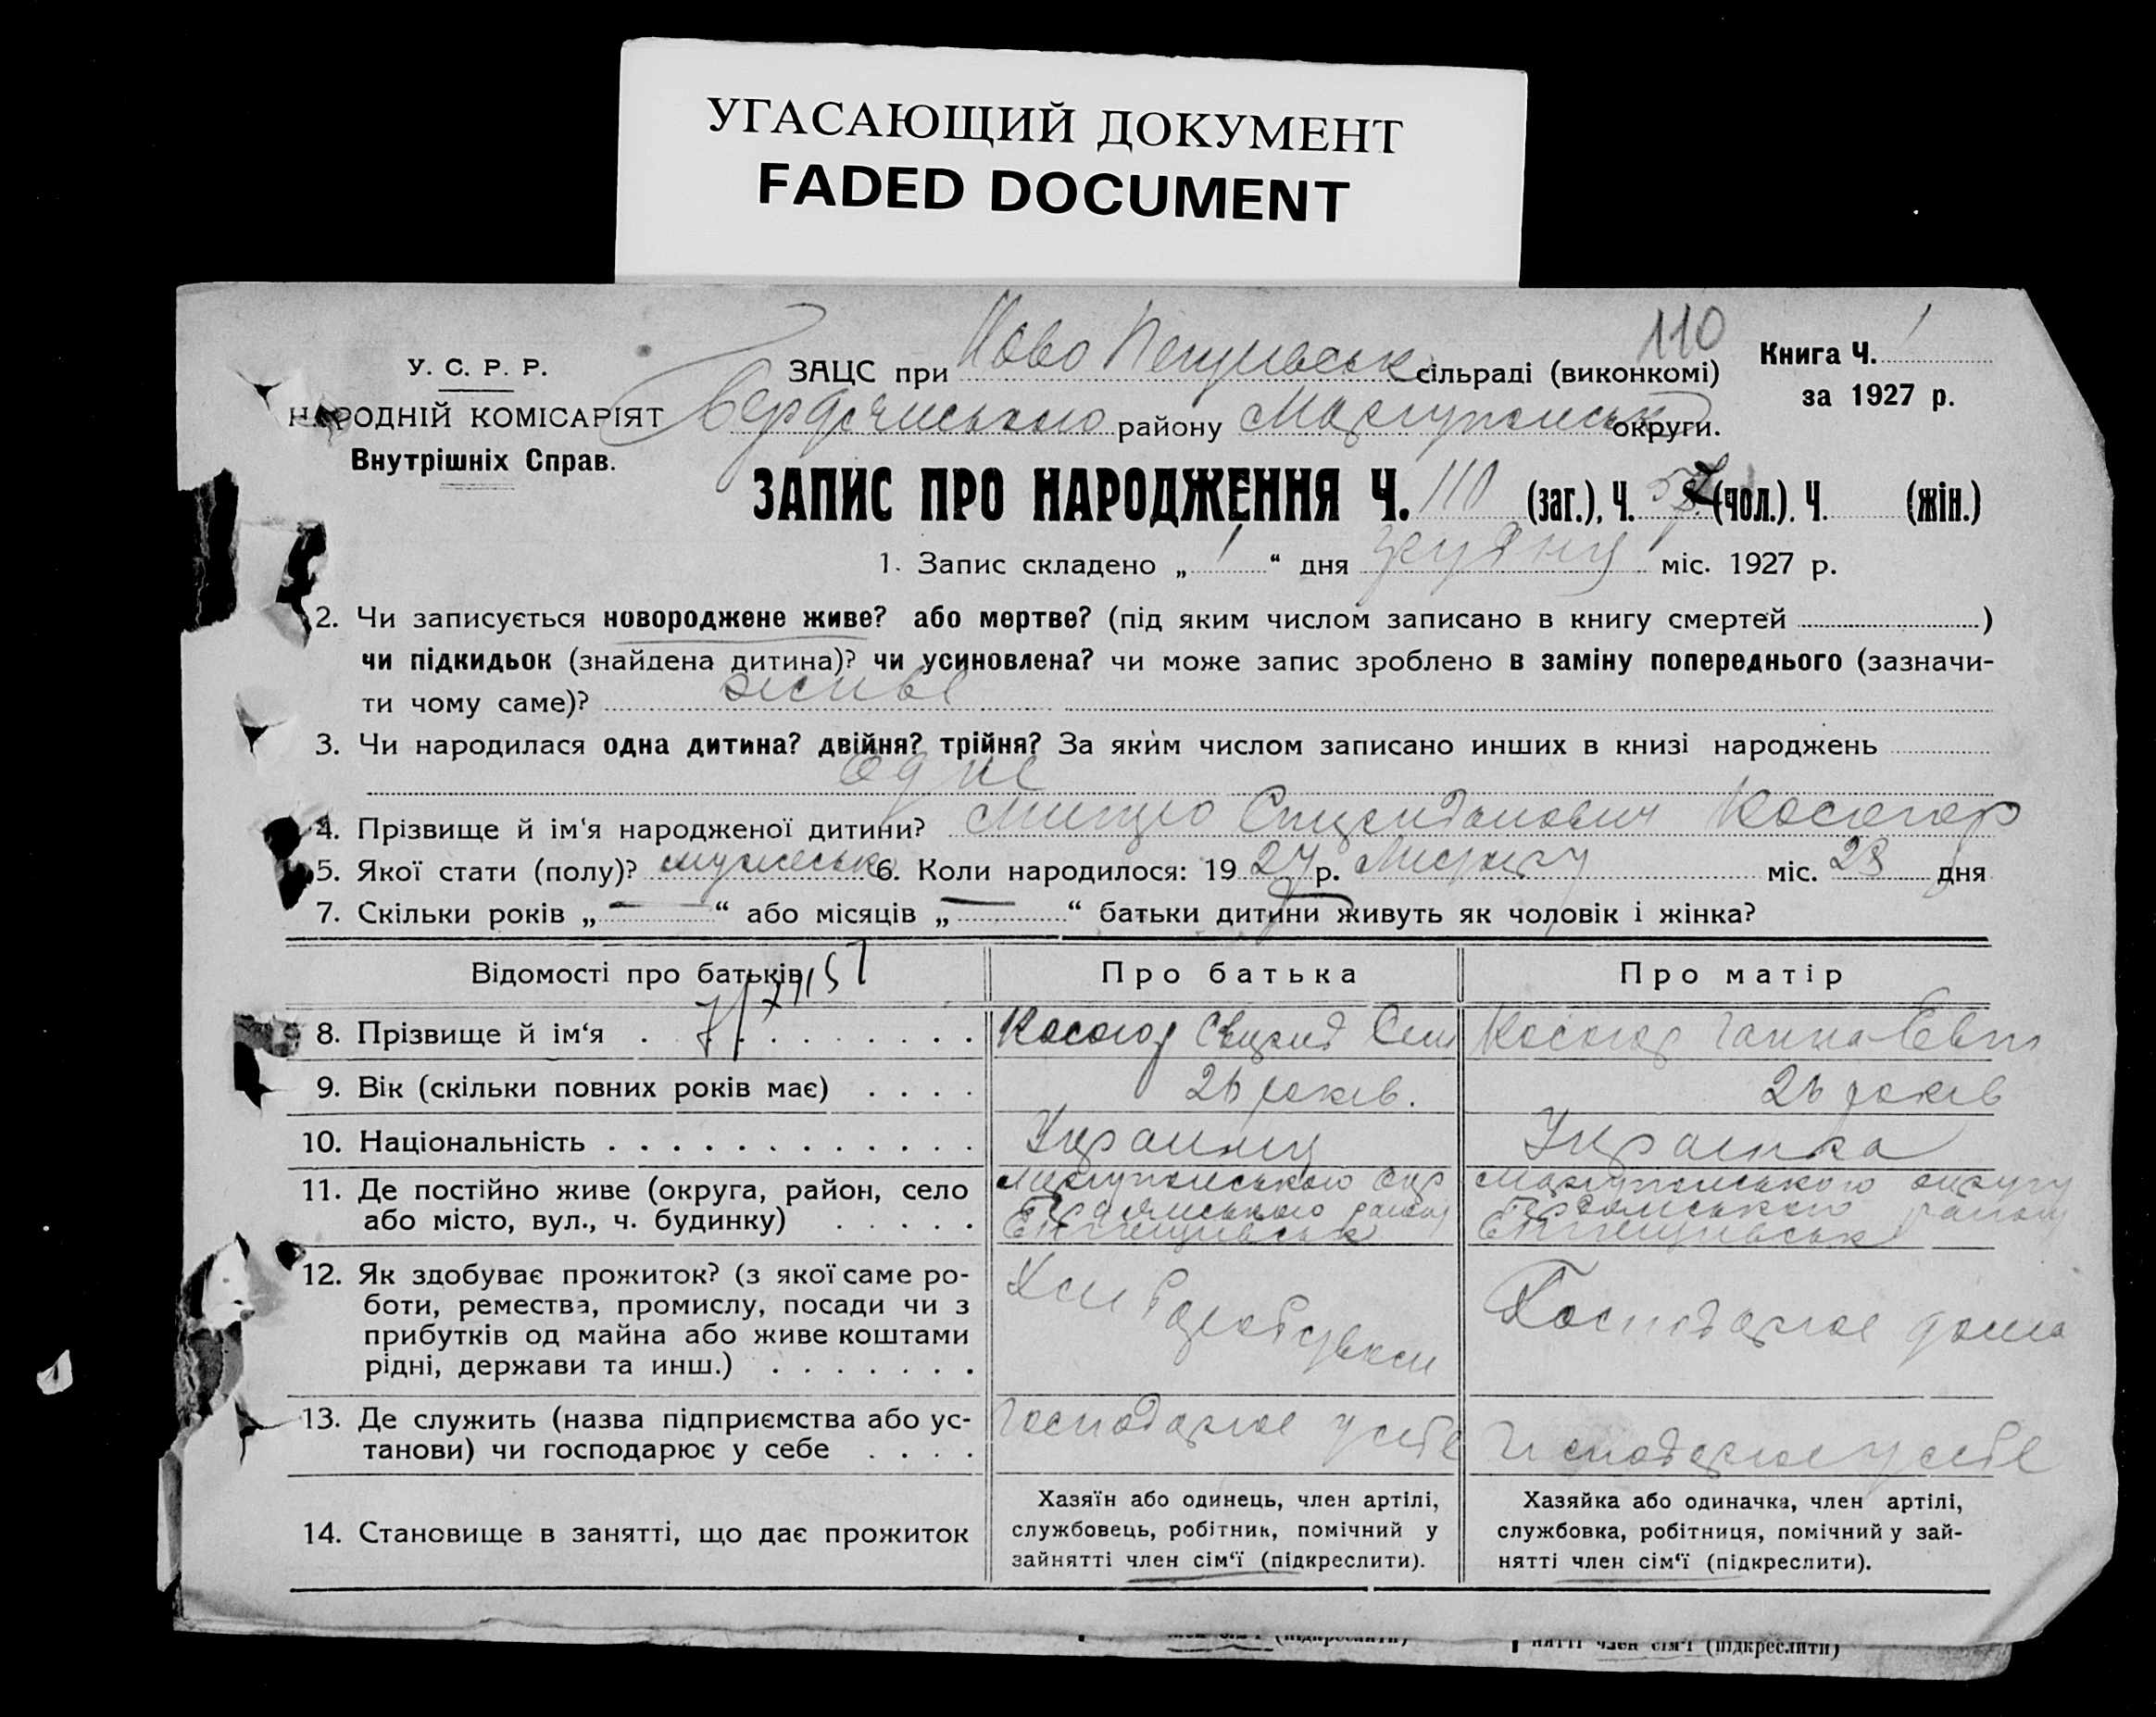 УГАСАЮЩИЙ ДОКУМЕНТ
FADED DOCUMENT
110
У. С. Р. Р.
НАРОДНІЙ КОМІСАРІЯТ
Внутрішніх Справ.
ЗАЦС при Ново сільраді (виконкомі)
Бердянського району Маріупольськ округи.
Книга Ч. 1
за 1927 р.
ЗАПИС ПРО НАРОДЖЕННЯ Ч. 110 (заг.), Ч. (чол.). Ч. (жін.)
1. Запис складено „ 1 “ дня грудня міс. 1927 р.
2. Чи записується новороджене живе? або мертве? (під яким числом записано в книгу смертей )
чи підкидьок (знайдена дитина)? чи усиновлена? чи може запис зроблено в заміну попереднього (зазначи-
ти чому саме)? живе
3. Чи народилася одна дитина? двійня? трійня? За яким числом записано инших в книзі народжень
одне
4. Прізвище й ім'я народженої дитини? Косогор
5. Якої стати (полу)? мужеськ 6. Коли народилося: 19 27 р. міс. 23 дня
7. Скільки років „ — “ або місяців „ — “ батьки дитини живуть як чоловік і жінка?
Відомості про батьків
Про батька
Про матір
8. Прізвище й ім‘я
Косогор
Косогор Ганна
9. Вік (скільки повних років має)
26 років.
26 років
10. Національність
Украинец
Украинка
11. Де постійно живе (округа, район, село
або місто, вул., ч. будинку)
Маріупольського окр
Бердянського району
Маріупольського округу
Бердянського району
12. Як здобуває прожиток? (з якої саме ро-
боти, ремества, промислу, посади чи з
прибутків од майна або живе коштами
рідні, держави та инш.)
Господарює дома
13. Де служить (назва підприємства або ус-
танови) чи господарює у себе
Господарює у себе
Господарює у себе
14. Становище в занятті, що дає прожиток
Хазяїн або одинець, член артілі,
службовець, робітник, помічний у
зайнятті член сім‘ї (підкреслити).
Хазяйка або одиначка, член артілі,
службовка, робітниця, помічний у зай-
нятті член сім‘ї (підкреслити).
член сім‘ї (підкреслити)
нятті член сім‘ї (підкреслити)